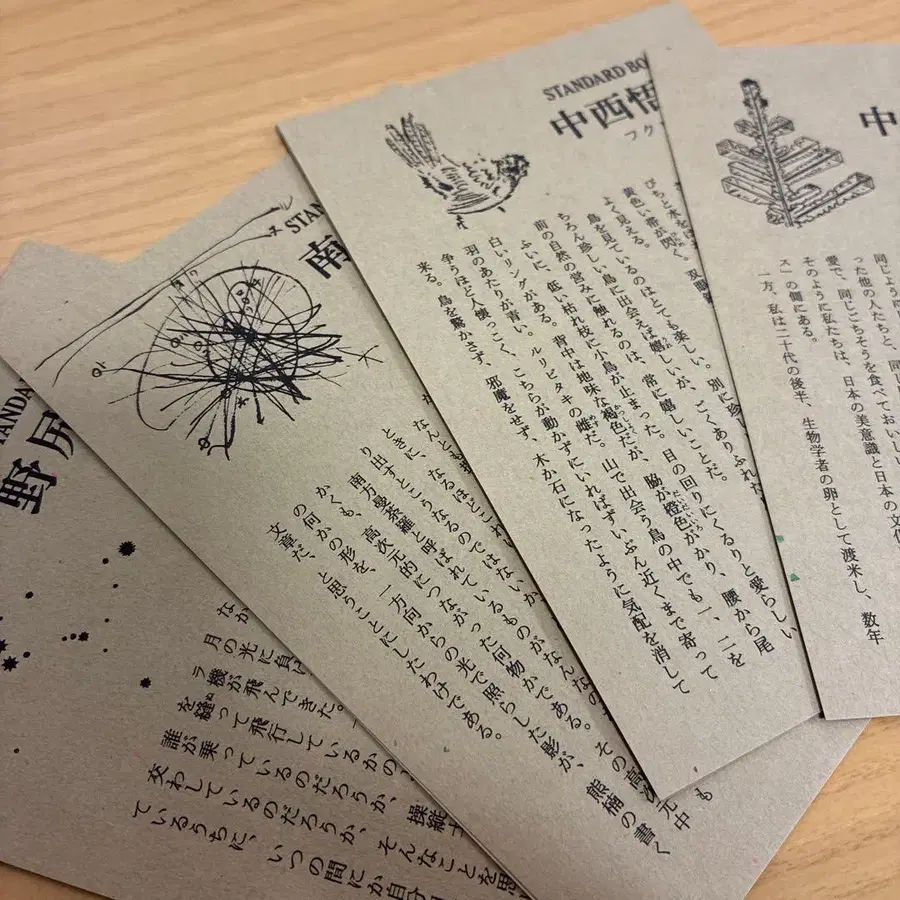 STANDARD BO
中西悟
フク
ぴちと水をは
黄色い帯が閃く。双眼鏡
よく見える。
鳥を見ているのはとても楽しい。別に珍
ちろん珍しい鳥に出会えば嬉しいが、ごくありふれた
前の自然の営みに触れるのは、常に嬉しいことだ。
ふいに、低い枯れ枝に小鳥が止まった。目の回りにくるりと愛らしい
白いリングがある。背中は地味な褐色だが、脇が橙色がかり、腰から尾
羽のあたりが青い。ルリビタキの雌だ。山で出会う鳥の中でも一、二を
争うほど人懐っこく、こちらが動かずにいればずいぶん近くまで寄って
来る。鳥を驚かさず、邪魔をせず、木か石になったように気配を消して
も
中
同じように
った他の人たちと、同じ
愛で、同じごちそうを食べておいしい
そのように私たちは、日本の美意識と日本の文化
ス」の側にある。
一方、私は二十代の後半、生物学者の卵として渡米し、数年
STAN
南
なんとも
ときに、なるほどこれ
り出すとこうなるのではないか
南方曼荼羅と呼ばれているものがなんなの
かくも、高次元的につながった何物かである。その高次元中
の何かの形を、一方向からの光で照らした影が、熊楠の書く
文章だ、と思うことにしたわけである。
STANDARD
野尻
なか
月の光に負け
ラ機が飛んできた。
を縫って飛行しているかの
誰が乗っているのだろうか、操縦士
交わしているのだろうか、そんなことを思
ているうちに、いつの間にか自分